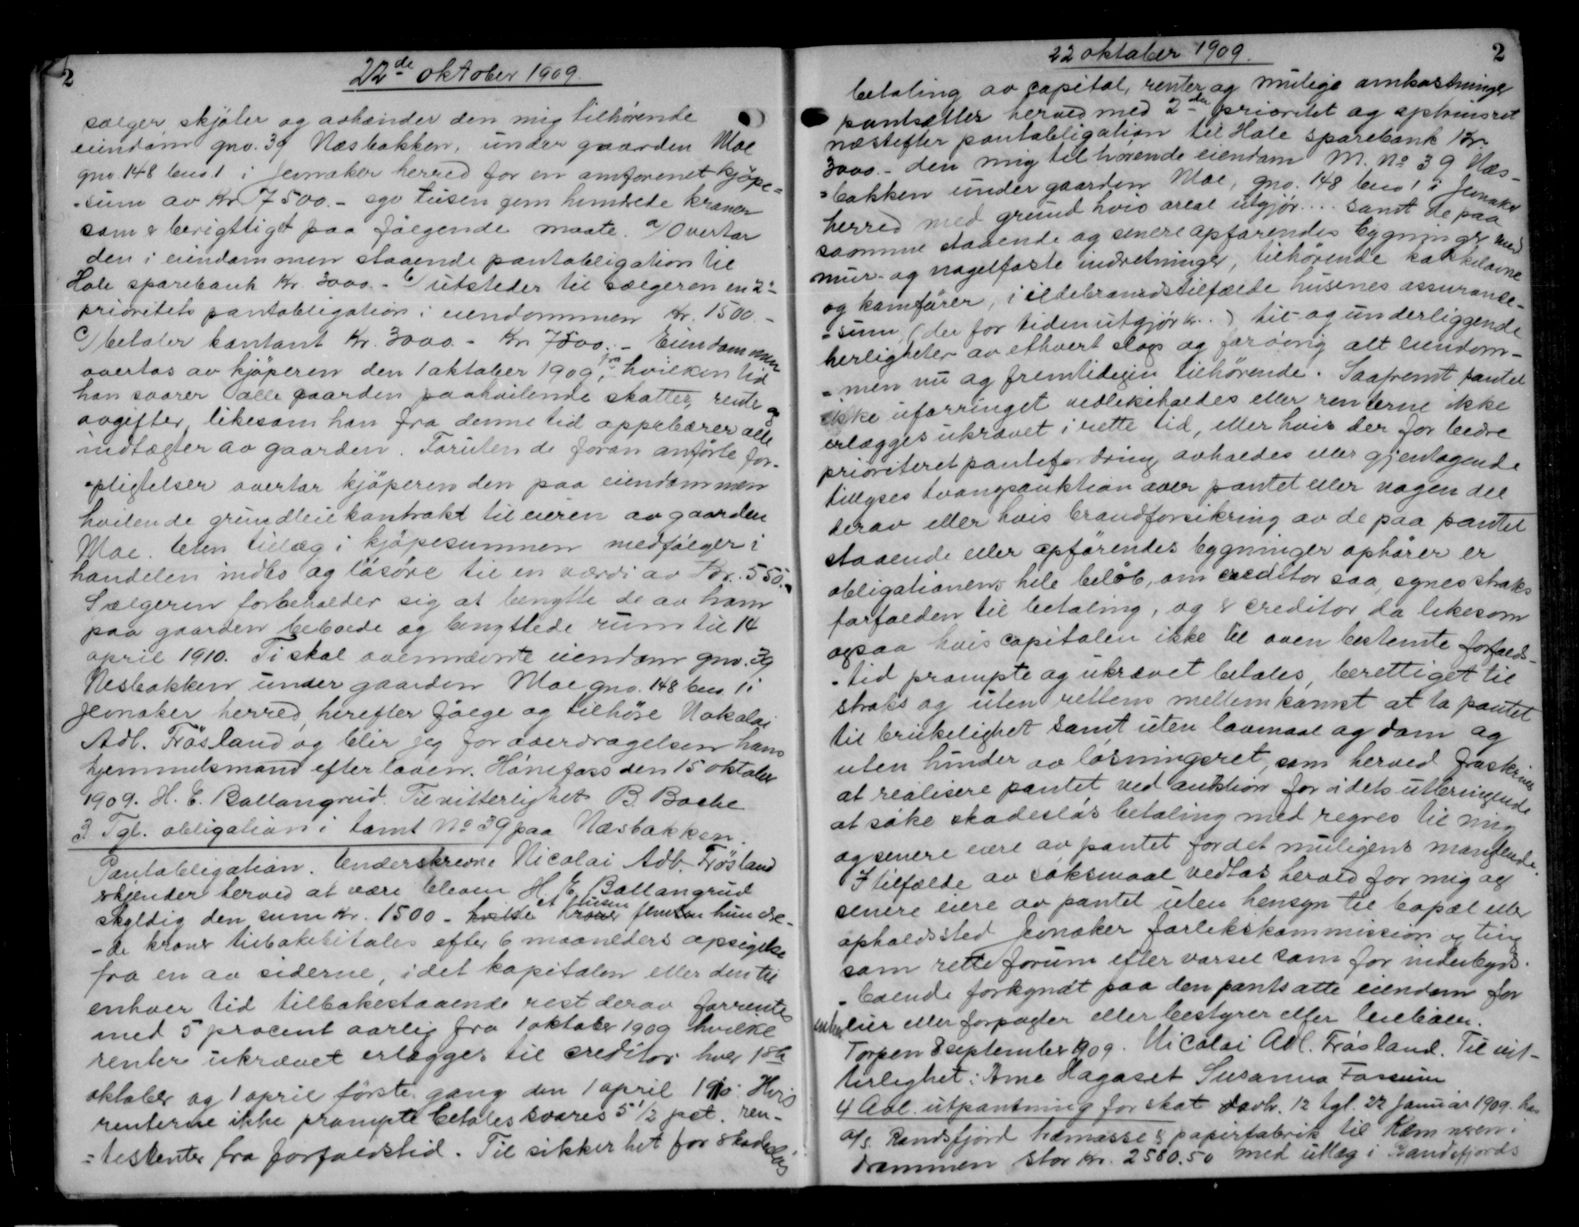 2
22de oktober 1909.
sælger, skjøter og avhænder den mig tilhørende
eiendom gno. 39 Næsbakken, under gaarden Moe
gno 148 bno 1 i Jevnaker herred for en omforenet kjøpe=
-sum av Kr 7500.- syv tusen fem hundrede kroner
som er berigtiget paa følgende maate. a/ Overtar
den i eiendommen staaende pantobligation til
Hole sparebank Kr. 3000.- b/ utsteder til sælgeren en 2
prioritets pantobligation i eiendommen Kr. 1500 -
c/ betaler kontant Kr. 3000 - Kr 7500.- Eiendommen
overtas av kjøperen den 1 oktober 1909, fra hvilken tid
han svarer alle gaarden paahvilende skatter, renter og
avgifter, likesom han fra denne tid oppebærer alle
indtægter av gaarden. Foruten de foran anførte for-
-pligtelser overtar kjøperen den paa eiendommen
hvilende grundleiekontrakt til eieren av gaarden
Moe. Uten tillæg i kjøpesummen medfølger i
handelen indbo og løsøre til en værdi av Kr. 550.-
Sælgeren forbeholder sig at benytte de av ham
paa gaarden beboede og benyttede rum til 14
april 1910. Ti skal ovennævnte eiendom gno. 39
Nesbakken under gaarden Moe gno. 148 bno. 1 i
Jevnaker herred, herefter følge og tilhøre Nokolai
Adl. Frösland og blir jeg for overdragelsen hans
hjemmelsmand efter loven. Hønefoss den 15 oktober
1909. H. E. Ballangrud. Til vitterlighet B. Boche
3. Tgl. obligation i tomt No 39 paa Næsbakken.
Pantobligation. Underskrevne Nicolai Adl. Frösland
erkjender herved at være bleven H. E. Ballangrud
skyldig den sum Kr. 1500 - et tusen femten hundre-
-de kroner tilbakebitales efter 6 maaneders opsigelse
fra en av siderne, idet kapitalen eller den til
enhver tid tilbakestaaende rest derav forrentes
med 5 procent aarlig fra 1 oktober 1909 hvilke
renter ukrævet erlægges til creditor hver 1ste
oktober og 1 april første gang den 1 april 1910. Hvis
renterne ikke prompte betales svares 5 1/2 pct. ren-
=tesrenter fra forfaldstid. Til sikkerhet for skadesløs
22 oktober 1909.
2
betaling av capital, renter og mulige omkostninger
pantsætter herved med 2den prioritet og optrinsret
næstefter pantobligation til Hole sparebank Kr.
3000.- den mig tilhørende eiendom M. No 39 Næs-
=bakken under gaarden Moe, gno. 148 bno 1 i Jevnaker
herred med grund hvis areal utgjør ... samt de paa
samme staaende og senere opførendes bygninger med
mur- og nagelfaste indretninger, tilhørende kakkelovne
og komfører, i ildebrandstilfælde husenes assurance-
-sum, (der for tiden utgjør kr. ..) til- og underliggende
herligheter av ethvert slags og forøvrig alt eiendom-
-men nu og fremtidigen tilhørende. Saafremt pantet
ikke uforringet vedlikeholdes eller renterne ikke
erlægges ukrævet i rette tid, eller hvis der for bedre
prioriteret pantefordring avholdes eller gjentagende
tillyses tvangsauktion over pantet eller nogen del
derav eller hvis brandforsikring av de paa pantet
staaende eller opførendes bygninger ophører er
obligationens hele beløb, om creditor saa synes straks
forfalden til betaling, og er creditor da likesom
ogsaa hvis capitalen ikke til oven bestemte forfalds-
-tid prompte og ukrævet betales, berettiget til
straks og uten rettens mellemkomst at ta pantet
til brukelighet samt uten lovmaal og dom og
uten hinder av løsningsret, som herved fraskrives
at realisere pantet ved auktion for i dets utbringende
at søke skadesløs betaling med regres til mig
og senere eiere av pantet for det muligens manglende.
I tilfælde av søksmaal vedtas herved for mig og
senere eiere av pantet uten hensyn til bopæl eller
opholdssted Jevnaker forlikskommission og ting
som rette forum efter varsel som for indenbygds-
-boende forkyndt paa den pantsatte eiendom for
enhver eier eller forpagter eller bestyrer eller leieboer.
Torpen 8 september 1909. Nicolai Adl. Frösland. Til vit-
terlighet: Arne Hagaset Susanna Fossum
4 Avl. utpantning for skat davh. 12 tgl. 22 januar 1909. hos
A/s Randsfjord træmasse & papirfabrik til Kæmneren i
Drammen stor Kr. 2580.50 med utlæg i Randsfjords